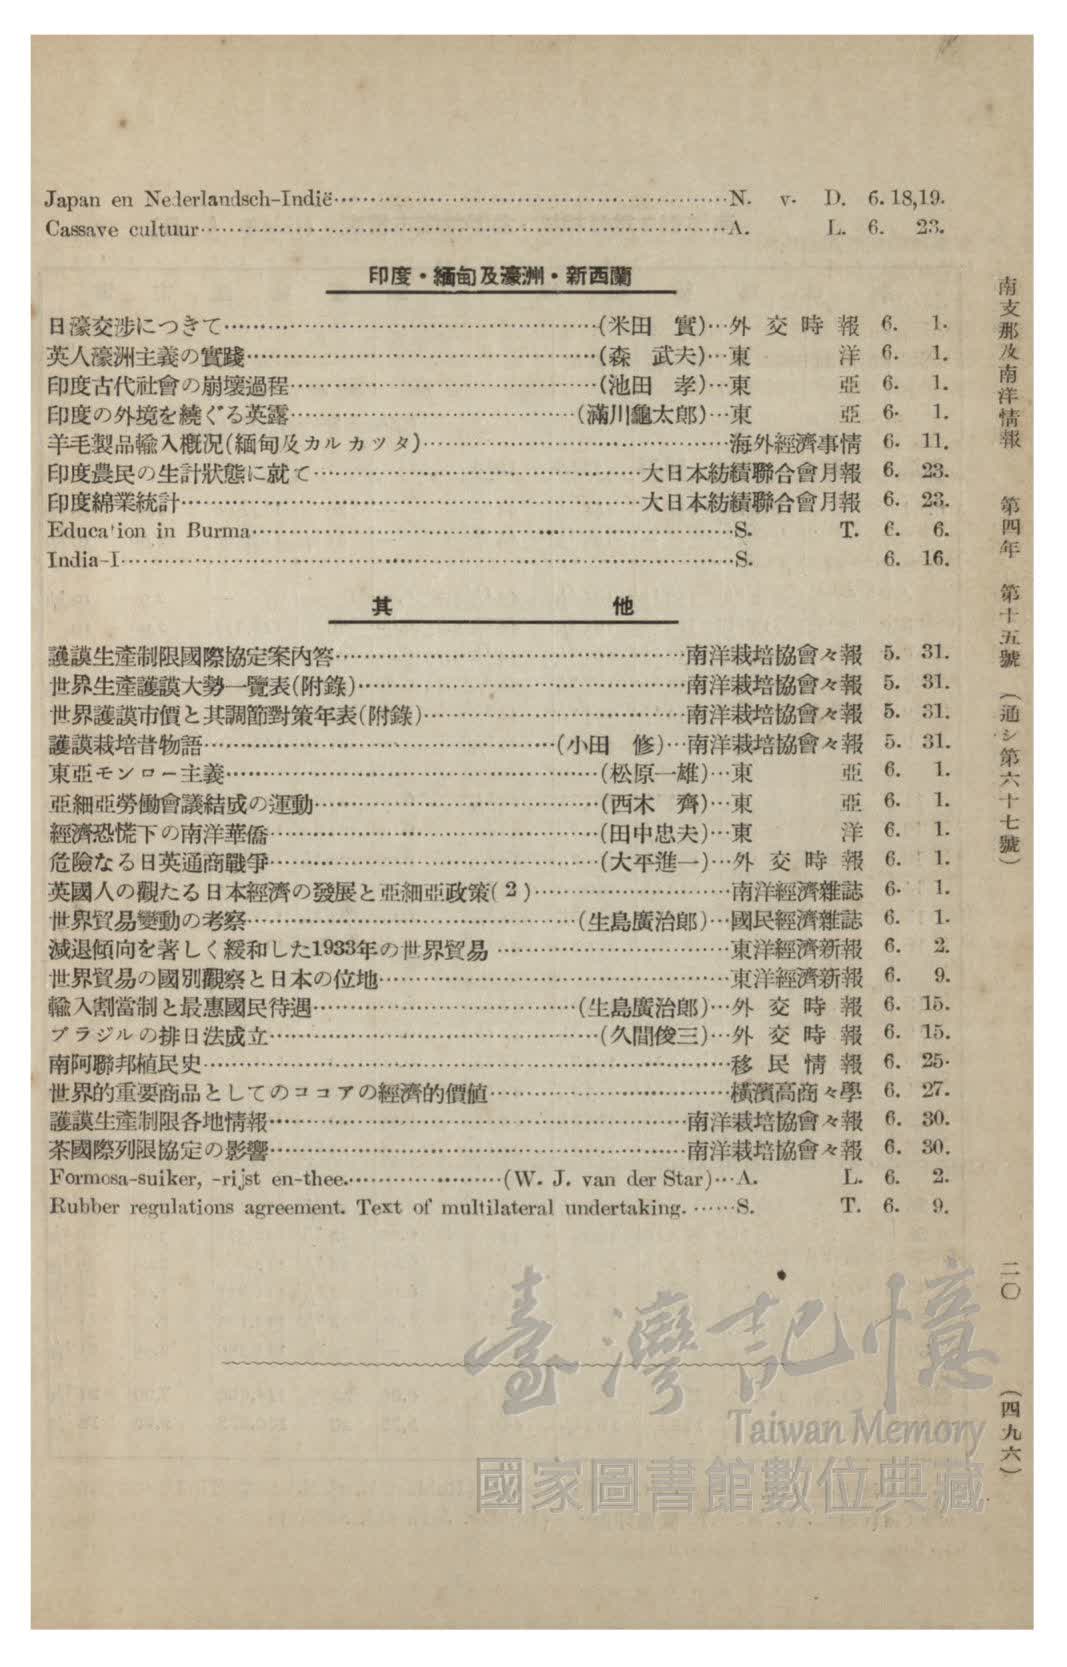 Japan en Nederlandsch-Indië……N. v. D. 6. 18,19.
Cassave cultuur……A. L. 6. 23.
印度・緬甸及濠洲・新西蘭
日濠交涉につきて……(米田 實)…外交時報 6. 1.
英人濠洲主義の實踐……(森 武夫)…東洋 6. 1.
印度古代社會の崩壞過程……(池田 孝)…東亞 6. 1.
印度の外境を繞ぐる英露……(滿川龜太郎)…東亞 6. 1.
羊毛製品輸入槪況(緬甸及カルカツタ)……海外經濟事情 6. 11.
印度農民の生計狀態に就て……大日本紡績聯合會月報 6. 23.
印度綿業統計……大日本紡績聯合會月報 6. 23.
Education in Burma……S. T. 6. 6.
India-I……S. 6. 16.
其他
護謨生產制限國際協定案內答……南洋栽培協會々報 5. 31.
世界生產護謨大勢一覽表(附錄)……南洋栽培協會々報 5. 31.
世界護謨市價と其調節對策年表(附錄)……南洋栽培協會々報 5. 31.
護謨栽培昔物語……(小田 修)…南洋栽培協會々報 5. 31.
東亞モンロー主義……(松原一雄)…東亞 6. 1.
亞細亞勞働會議結成の運動……(西木 齊)…東亞 6. 1.
經濟恐慌下の南洋華僑……(田中忠夫)…東洋 6. 1.
危險なる日英通商戰爭……(大平進一)…外交時報 6. 1.
英國人の觀たる日本經濟の發展と亞細亞政策(2)……南洋經濟雜誌 6. 1.
世界貿易變動の考察……(生島廣治郎)…國民經濟雜誌 6. 1.
減退傾向を著しく緩和した1933年の世界貿易……東洋經濟新報 6. 2.
世界貿易の國別觀察と日本の位地……東洋經濟新報 6. 9.
輸入割當制と最惠國民待遇……(生島廣治郎)…外交時報 6. 15.
ブラジルの排日法成立……(久間俊三)…外交時報 6. 15.
南阿聯邦植民史……移民情報 6. 25.
世界的重要商品としてのココアの經濟的價値……橫濱高商々學 6. 27.
護謨生產制限各地情報……南洋栽培協會々報 6. 30.
茶國際列限協定の影響……南洋栽培協會々報 6. 30.
Formosa-suiker, -rijst en-thee.……(W. J. van der Star)…A. L. 6. 2.
Rubber regulations agreement. Text of multilateral undertaking.……S. T. 6. 9.
南支那及南洋情報 第四年 第十五號 (通シ第六十七號) 二〇 (四九六)
臺灣記憶
Taiwan Memory
國家圖書館數位典藏